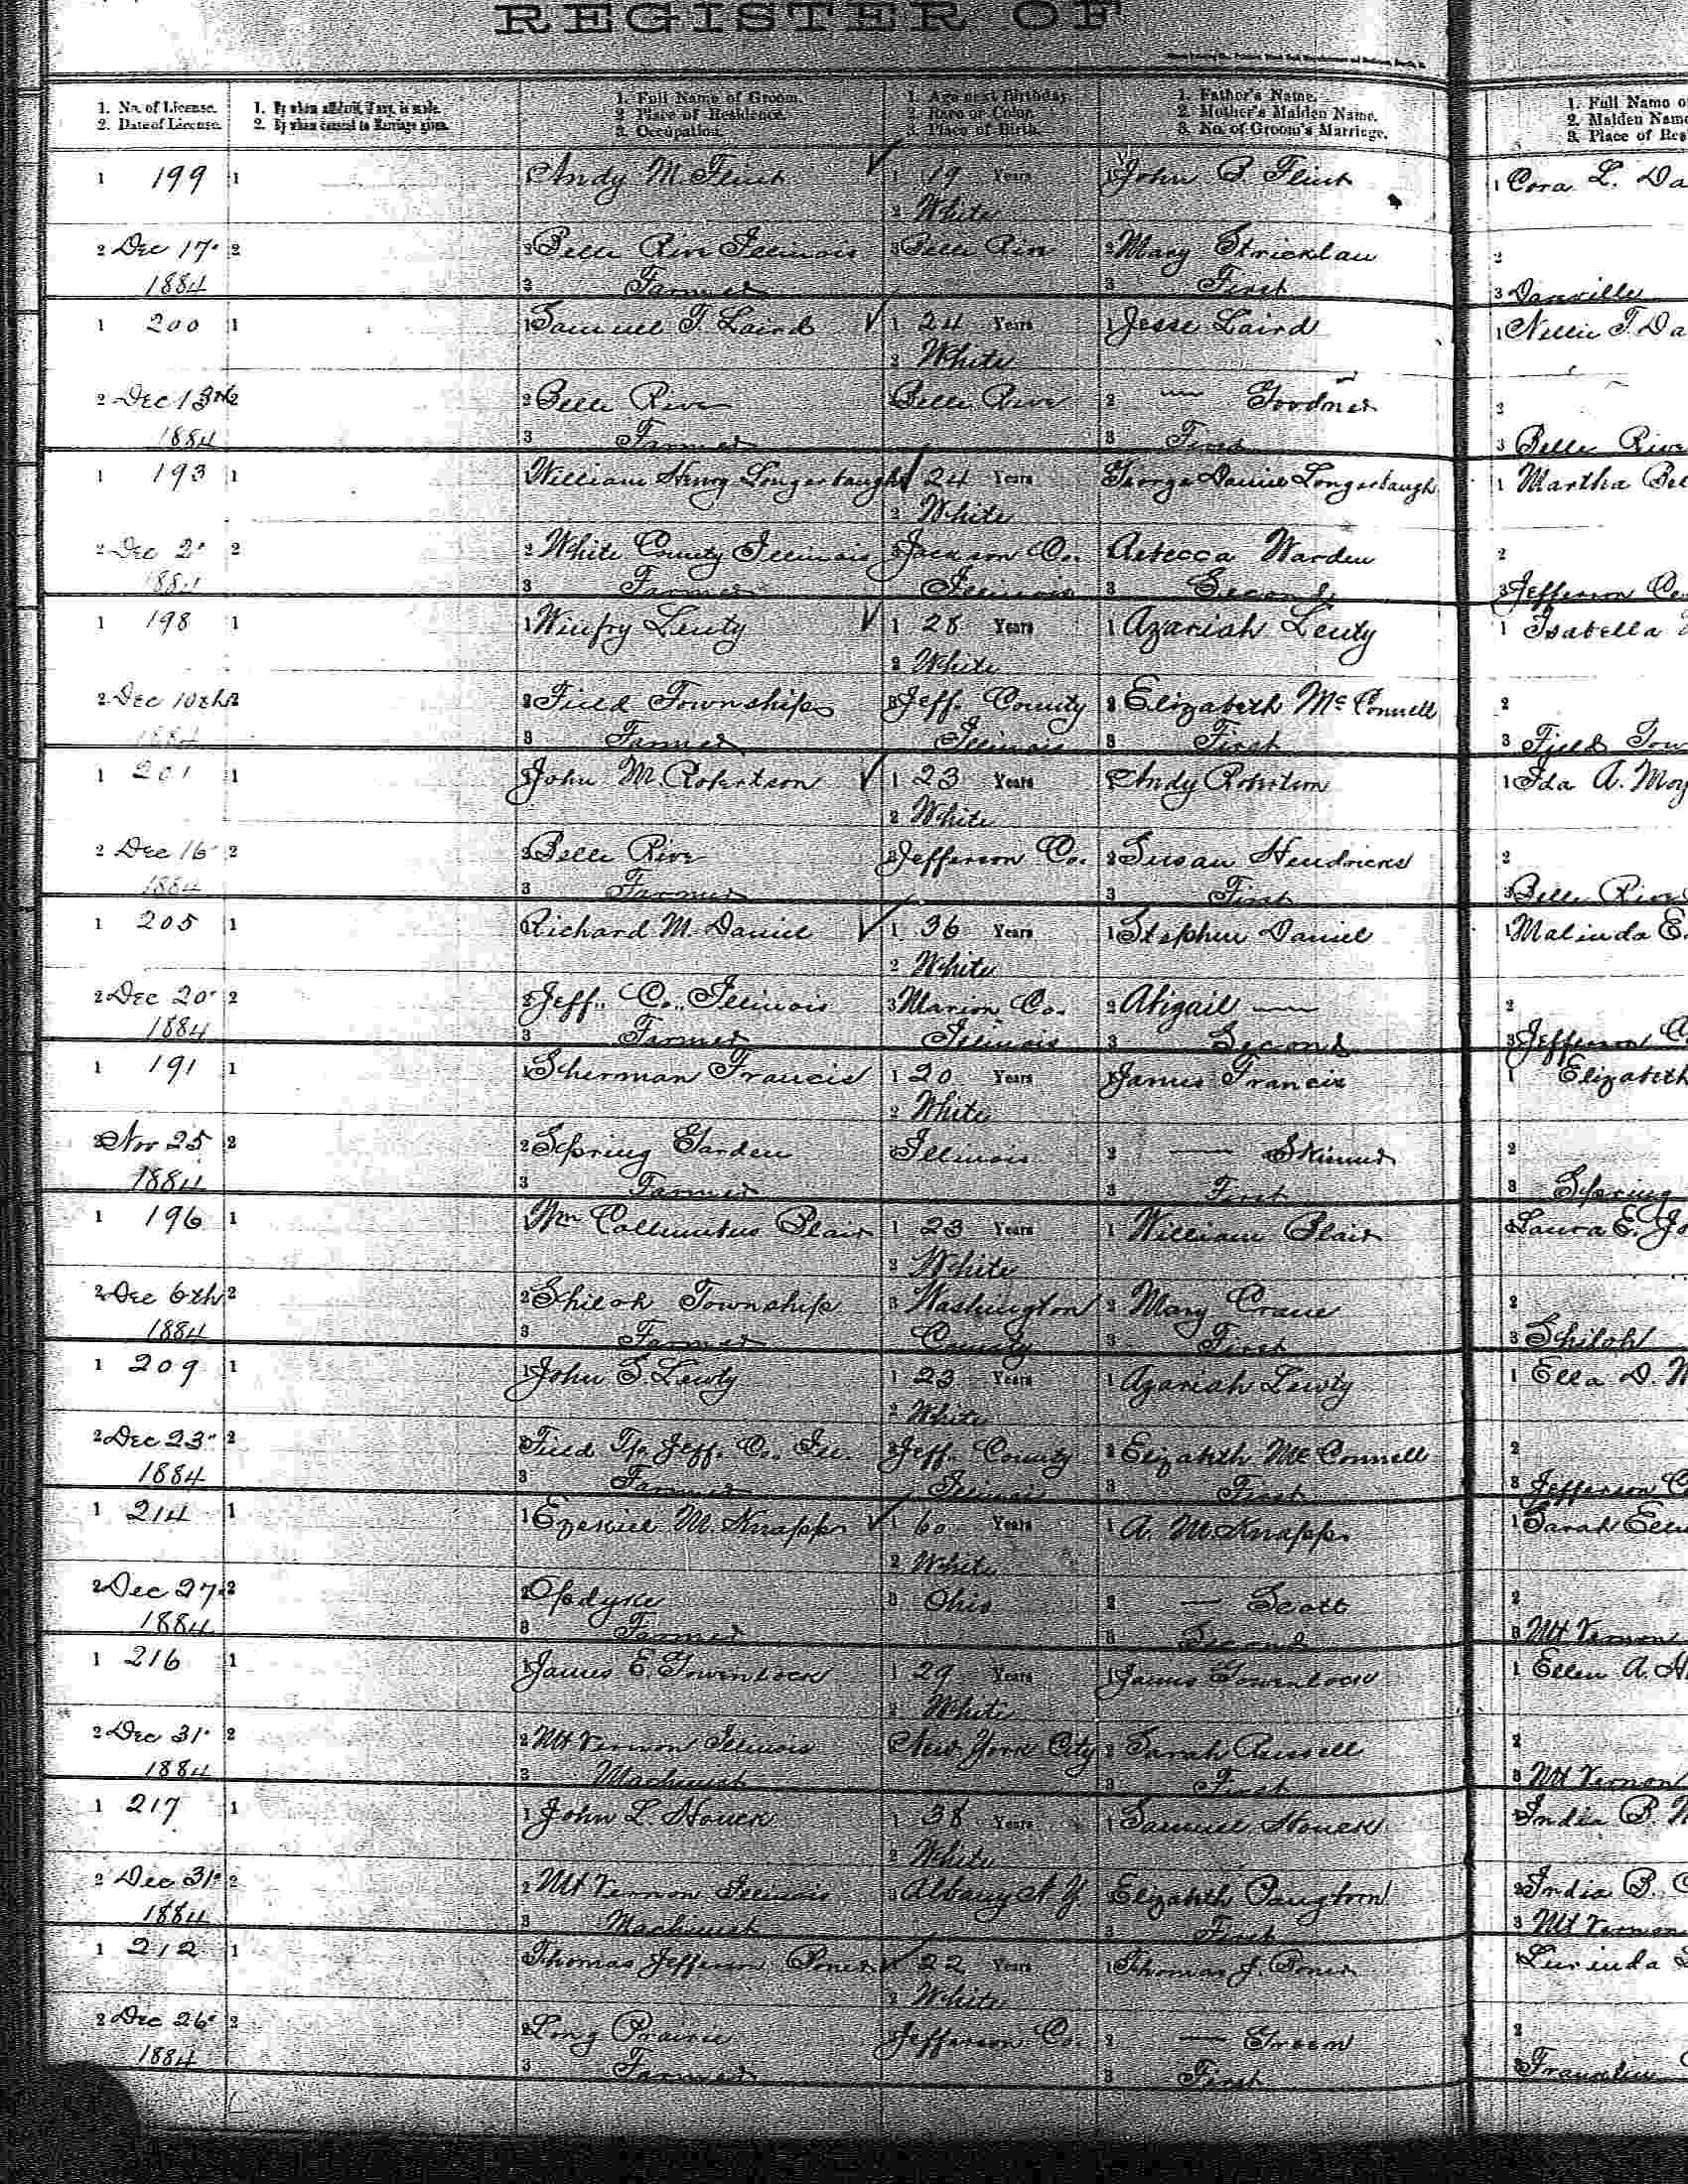 REGISTER OF
1. No. of License.
2. Date of License.
1. By whom affidavit, if any, is made.
2. By whom consent to Marriage given.
1. Full Name of Groom.
2. Place of Residence.
3. Occupation.
1. Age next Birthday.
2. Race or Color.
3. Place of Birth.
1. Father's Name.
2. Mother's Maiden Name.
3. No. of Groom's Marriage.
1. Full Name o
2. Maiden Name
3. Place of Res
1 199 1 Andy M. Flint 1 19 Years 1 John B. Flint 1 Cora L. Da
2 White
2 Dec 17 2 2 Belle Rive Illinois 3 Belle Rive 2 Mary Stricklau 2
1884 3 Farmer 3 First 3 Danville
1 200 1 1 Samuel T. Laird 1 24 Years 1 Jesse Laird 1 Nellie T. Da
2 White
2 Dec 13th 2 2 Belle Rive Belle Rive 2 — Goodner 2
1884 3 Farmer 3 First 3 Belle Rive
1 193 1 William Henry Longerbaugh 1 24 Years George Daniel Longerbaugh 1 Martha Bel
2 White
2 Dec 2 2 2 White County Illinois 3 Jackson Co. Rebecca Warden 2
1884 3 Farmer Illinois 3 Second 3 Jefferson Co.
1 198 1 1 Winfry Lenty 1 28 Years 1 Azariah Lenty 1 Isabella
2 White
2 Dec 10th 2 2 Field Township 3 Jeff. County 2 Elizabeth McConnell 2
1884 3 Farmer Illinois 3 First 3 Field Tow
1 201 1 1 John M. Robertson 1 23 Years 1 Andy Robertson 1 Ida A. Moy
2 White
2 Dec 16 2 2 Belle Rive 3 Jefferson Co. 2 Susan Hendricks 2
1884 3 Farmer 3 First 3 Belle Rive
1 205 1 1 Richard M. Daniel 1 36 Years 1 Stephen Daniel 1 Malinda E.
2 White
2 Dec 20 2 2 Jeff. Co. Illinois 3 Marion Co. 2 Abigail — 2
1884 3 Farmer Illinois 3 Second 3 Jefferson C
1 191 1 1 Scherman Francis 1 20 Years 1 James Francis 1 Elizabeth
2 White
2 Nov 25 2 2 Spring Garden 3 Illinois 2 — Skinner 2
1884 3 Farmer 3 First 3 Spring
1 196 1 1 Wm Collumbus Blair 1 23 Years 1 William Blair 1 Laura E. Jo
2 White
2 Dec 6th 2 2 Shiloh Township 3 Washington 2 Mary Crane 2
1884 3 Farmer County 3 First 3 Shiloh
1 209 1 1 John S. Lewty 1 23 Years 1 Azariah Lewty 1 Ella D. M
2 White
2 Dec 23 2 2 Field Tp. Jeff. Co. Ill. 3 Jeff. County 2 Elizabeth McConnell 2
1884 3 Farmer Illinois 3 First 3 Jefferson C
1 214 1 1 Ezekiel M. Knapp 1 60 Years 1 A. M. Knapp 1 Sarah Ellen
2 White
2 Dec 27 2 2 Opdyke 3 Ohio 2 — Scott 2
1884 3 Farmer 3 Second 3 Mt Vernon
1 216 1 1 James E. Gowenlock 1 29 Years 1 James Gowenlock 1 Ellen A. H
2 White
2 Dec 31 2 2 Mt Vernon Illinois New York City 2 Sarah Russell 2
1884 3 Machinist 3 First 3 Mt Vernon
1 217 1 1 John L. Houck 1 38 Years 1 Samuel Houck 1 India B.
2 White
2 Dec 31 2 2 Mt Vernon Illinois 3 Albany N.Y. Elizabeth Pangborn 2 India B. C
1884 3 Machinist 3 First 3 Mt Vernon
1 212 1 1 Thomas Jefferson Poner 1 22 Years 1 Thomas J. Poner Lurinda
2 White
2 Dec 26 2 2 Long Prairie 3 Jefferson Co. 2 — Green 2
1884 3 Farmer 3 First 3 Franklin